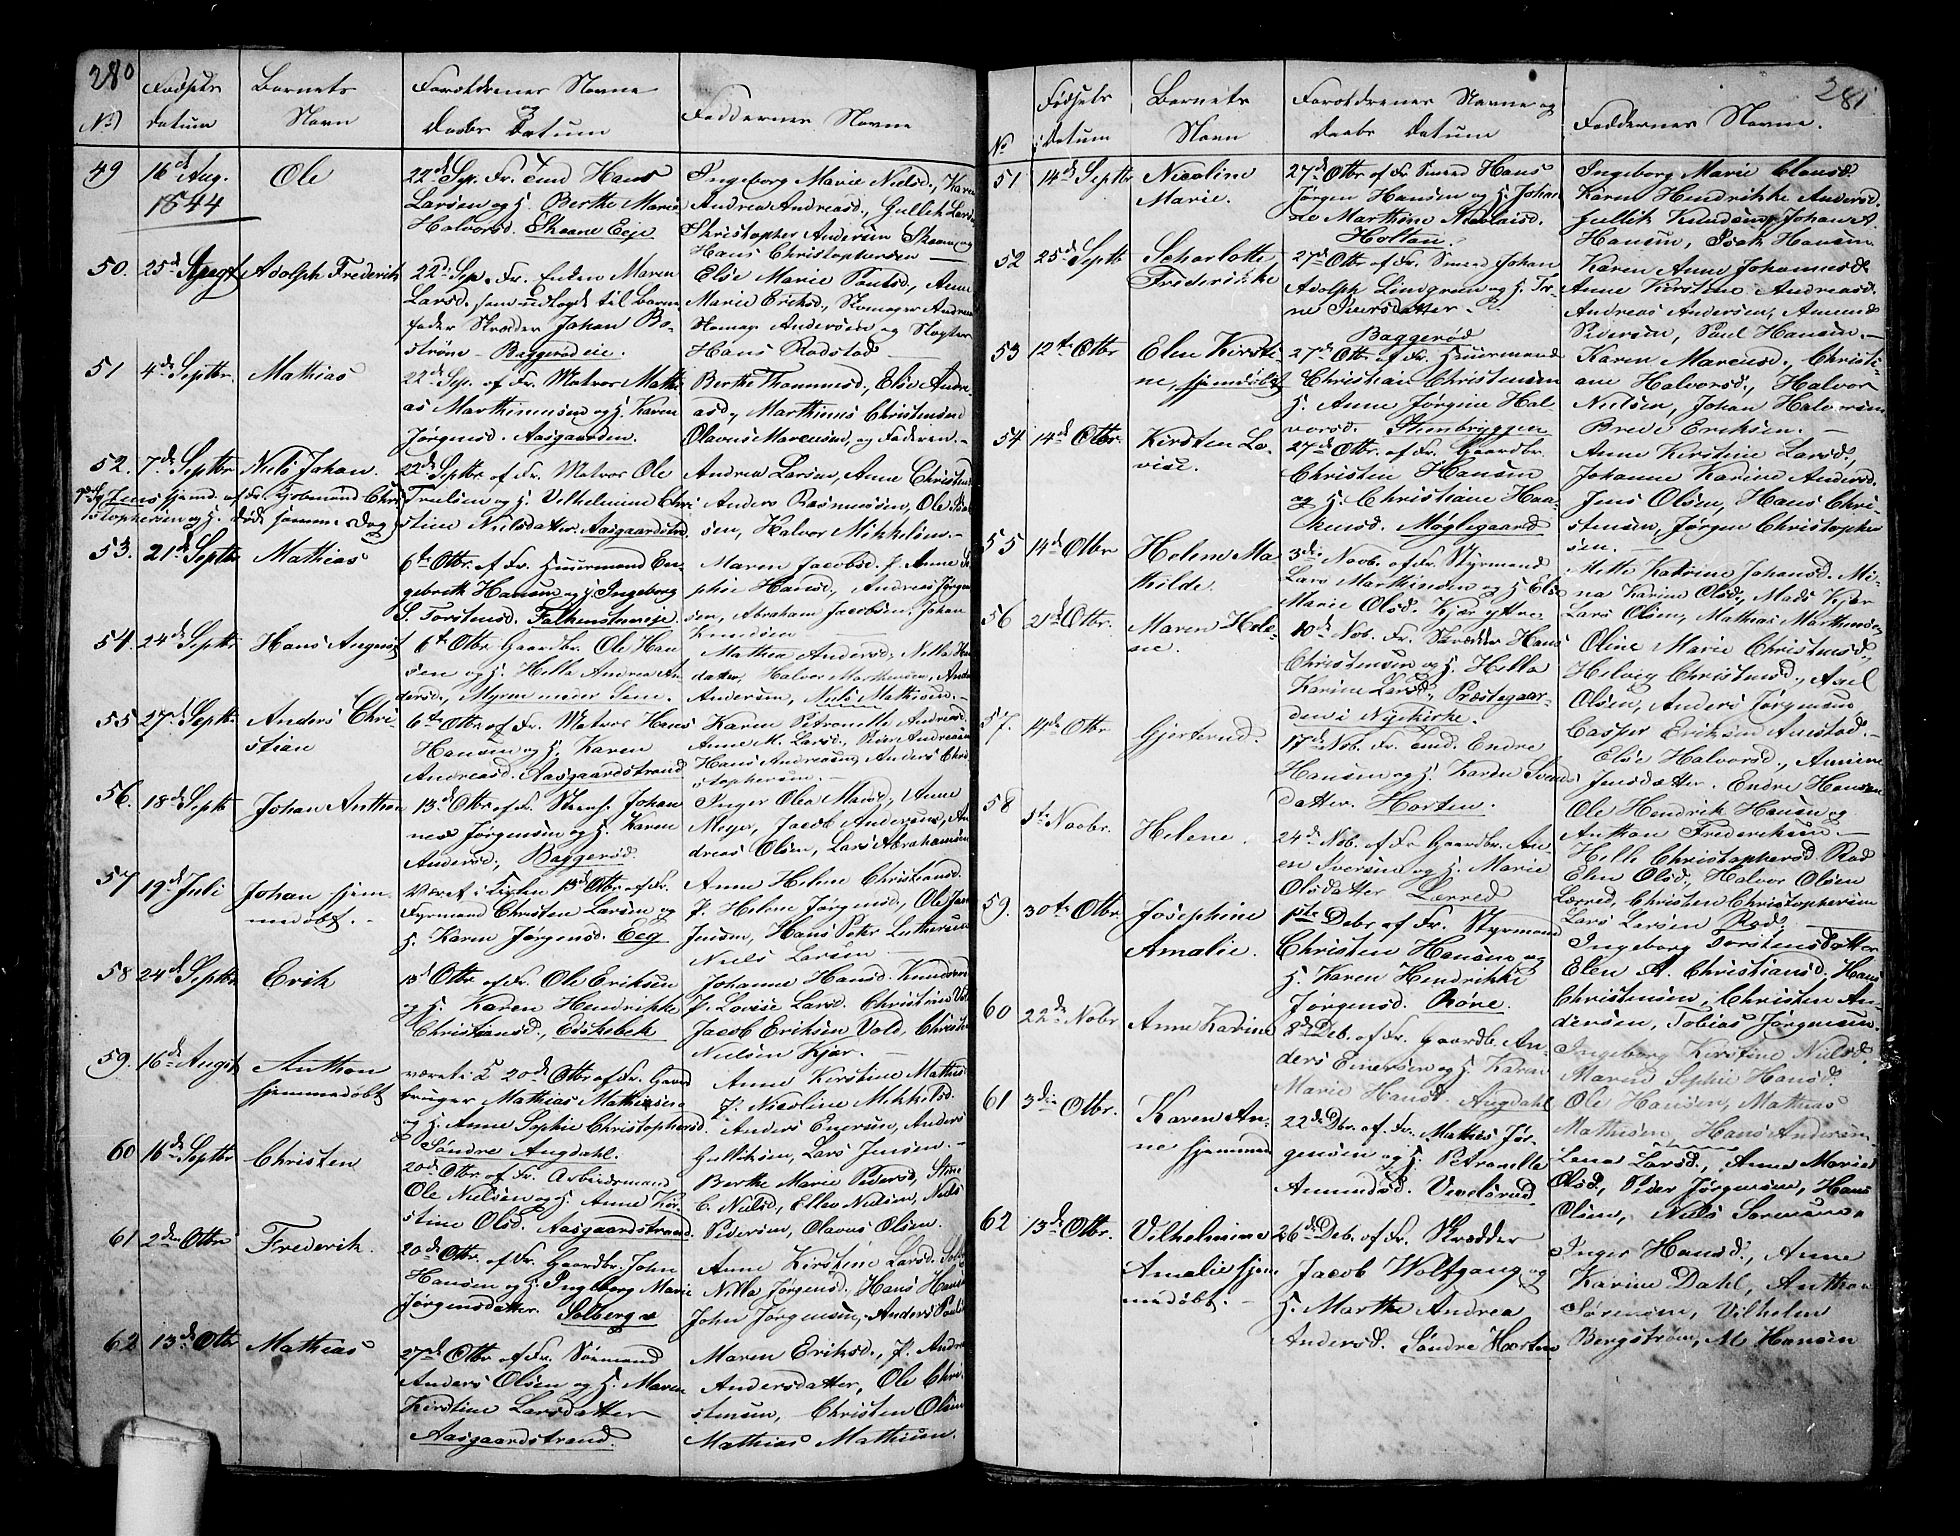 280
No
Fødsels
datum
Barnets
Navn
Forældrenes Navne
og
Daabs Datum
Faddernes Navne
49
16d Aug.
1844
Ole
22d Sep. Fr. Hans
Larsen og H. Berthe Marie
Halvorsd. Skaane Eje
Ingeborg Marie Nielsd., Karen
Andrea Andreasd., Gullik Lars
Christopher Andersen Skaane og
Hans Christophersen
50.
25d August
Adolph Frederik
22d Sep. Fr. Enken Maren
Larsd., som udlagt til Barne-
fader Skræder Johan Bo-
strøm – Baggerød eie.
Else Marie Poulsd., Anne
Marie Eriksd., Skomager Andreas
Andersen og
Hans Rodstad
51
4de Septbr.
Mathias
22d Sep. af Fr. Matros Mathi
as Marthinusen og H. Karen
Jørgensd. Aasgaarden.
Berthe Thommesd., Elise Andre
asd., Marthinus Christensen
Olavus Marcusen, og Faderen.
52.
7de Septbr
Niels Johan.
22d Septbr af Fr. Matros Ole
Truelsen og H. Vilhelmine Chri
stine Nielsdatter Aasgaardstrand.
Andrea Larsen, Anne Christensd
Anders Rasmussen, Ole
sen, Halvor Mikkelsen.
Jens hjemd. af Fr. Chri
stophersen og H. døde samme Dag
53.
21de Septbr
Mathias
6te Otbr. af Fr. Huusmand En-
gebreth Hansen og H. Ingeborg
S. Torstensd. Falkensteneje.
Maren Jacobsd. J. Anne So
phie Hansd., Andreas Jørgen
sen, Abraham Jacobsen, Johan
Knudsen
54.
24de Septbr
Hans August
6te Otbr. Gaardbr. Ole Han
sen og H. Hella Andrea An
dersd., Myren under Sem.
Mathea Andersd., Nilla Han
datter, Halvor Marthinsen, Anders
Andersen, Niels Mathisen.
55
27de Septbr.
Anders Chri-
stian
6te Otbr. af Fr. Matros Hans
Hansen og H. Karen
Andreasd. Aasgaardstrand
Karen Petronelle Andreasd.
Anne M. Larsd., Peder Andreasen
Hans Andreasen, Anders Chri
stophersen.
56.
18de Septbr
Johan Anthon
13de Otbr. af Fr. Johan
nes Jørgensen og H. Karen
Andersd., Baggerød.
Inger Olea Mansd., Anne
Meyer, Jacob Andersen, An
dreas Olsen, Lars Abrahamsen
57
19de Juli
Johan hjem
medøbt.
Været i Kirken 13de Otbr. af Fr.
Styrmand Christen Larsen og
H. Karen Jørgensd. Eeg
Anne Helene Christiansd.
J. Helene Jørgensd., Ole Jan
Jensen, Hans Peter
Niels Larsen
58
24de Septbr
Erik
13de Otbr. af Fr. Ole Eriksen
og H. Karen Hendrikke
Christiansd., Eskebek
Johanne Hansd. Knudsen
J. Lovise Larsd. Christine
Jacob Eriksen Vold, Christen
Nielsen Kjær.
59.
16de Augst
Anthon
hjemmedøbt
været i K. 20de Otbr. af Fr. Gaard
bruger Mathias Mathiesen
og H. Anne Sophie Christophersd.
Søndre Augdahl.
Anne Kirstine Mathis
J. Nicoline Mikkelsd.
Anders Enersen, Anders
Gulliksen, Lars Jensen.
60
16de Septbr
Christen
20de Otbr. af Fr. Arbeidsmand
Ole Nielsen og H. Anne Kir
stine Olsd. Aasgaardstrand
Berthe Marie Pedersd., Stine
C. Nielsd., Ellev Nielsen, Niels
Pedersen, Olavus Olsen.
61
2den Otbr
Frederik.
20de Otbr. af Fr. Gaardbr. John
Hansen og H. Ingeborg Marie
Jørgensdatter. Solberg
Anne Kirstine Larsd.
Nilla Jørgensd., Hans Hansen
John Jørgensen, Anders Paul
62
13de Otbr
Mathias
27de Otbr. af Fr. Sømand
Anders Olsen og H. Maren
Kirstine Larsdatter
Aasgaardstrand.
Maren Eriksd., J. Andre
Andersdatter, Ole Chri
stensen, Christen Olsen
Mathias Mathisen.
281
No
Fødsels
Datum
Barnets
Navn
Forældrenes Navne og
Daabs Datum
Faddernes Navne.
51
14de Septbr
Nicoline
Marie.
27de Otbr. af Fr. Smed Hans
Jørgen Hansen og H. Johan
ne Marthine Nicolaisd.
Holtan.
Ingeborg Marie Clausd.
Karen Hendrikke Andersd.
Gullik Knudsen, Johan A.
Hansen, Isak Hansen
52
25de Septbr
Scharlotte
Frederikke
27de Otbr. af Fr. Smed Johan
Adolph Lindgren og H. Tri-
ne Iversdatter.
Baggerød
Karen Anne Johannesd.
Anne Kirstine Andreasd.
Andreas Andersen, Amund
Pedersen, Paul Hansen.
53
12te Otbr
Elen Kirsti-
ne, hjemdøbt
27de Otbr. af Fr. Huusmand
Christian Christensen
H. Anne Jørgine Hal
vorsd. Steenbryggen
Karen Marcusd., Christi-
ane Halvorsd., Halvor
Nielsen, Johan Halvorsen
Brede Eriksen.
54
14de Otbr.
Kirsten Lo-
vise.
27de Otbr. af Fr. Gaardbr.
Christen Hansen
og H. Christiane Haa-
kensd. Møglegaard
Anne Kirstine Larsd.,
Johanne Karine Andersd.
Jens Olsen, Hans Chri-
stensen, Jørgen Christopher
sen.
55
14de Otbr
Helene Ma
thilde.
3die Novb. af Fr. Styrmand
Lars Marthinsen og H. Else
Marie Olsd. Kjær ytre
Mette Katrine Johansd. Mi-
na Karine Olsd., Mads Kjær
Lars Olsen, Mathias Marthinsen
56
21de Otbr.
Maren Hele-
ne.
10de Nob. Fr. Skrædder Hans
Christensen og H. Hella
Karine Larsd., Præstegaar-
den i Nykirke.
Oline Marie Christensd.,
Helvig Christensd., Axel
Olsen, Anders Jørgensen
Casper Eriksen Anistad.
57.
14de Otbr
Gjertrud.
17de Nob. Fr. Endre
Hansen og H. Karen Svends
datter. Horten.
Else Halvorsd., Annine
Jensdatter. Endre Hansen
Ole Hendrik Hansen og
Anthon Frederiksen.
58
5te Novbr.
Helene.
24de Nob. af Fr. Gaardbr. An
en Iversen og H. Marie
Olsdatter Lærred
Helle Christophersd. Rød
Elen Olsd., Halvor Olsen
Lærred, Christen Christophersen
Lars Larsen Rød.
59.
30te Otbr
Josephine
Amalie.
1ste Debr. af Fr. Styrmand
Christen Hansen og
H. Karen Hendrikke
Jørgensd. Røre.
Ingeborg Torstensdatter
Elen A. Christiansd., Hans
Christensen, Christen An-
dersen, Tobias Jørgensen.
60
22de Nobr
Anne Karine
8de Deb. af Fr. Gaardb. An-
ders Einersen og H. Karen
Marie Hansd. Augdahl
Ingeborg Kirstine Nielsd.
Maren Sophie Hansd.
Ole Hansen, Mathias
Mathisen, Hans Andersen.
61
3die Otbr.
Karen An-
ne hjemmed
22de Debr. af Fr. Mathis Jør-
gensen og H. Petronelle
Amundsd. Vevelsrud
Lena Larsd., Anne Marie
Olsd., Peder Jørgensen, Hans
Olsen, Niels Sørensen
62
13de Otbr.
Vilhelmine
Amalie hjem
medøbt.
26de Deb. af Fr. Skrædder
Jacob Wolfgang og
H. Marthe Andrea
Andersd. Søndre Horten
Inger Hansd., Anne
Karine Dahl, Anthon
Sørensen, Vilhelm
Bergstrøm, M. Hansen